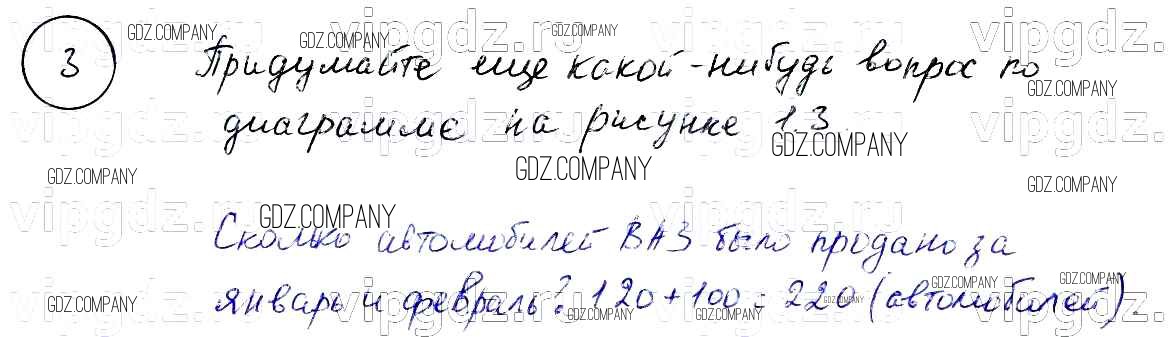 3 Придумайте еще какой-нибудь вопрос по
диаграмме на рисунке 1.3
Сколько автомобилей ВАЗ было продано за
январь и февраль? 120+100=220 (автомобилей).
GDZ.COMPANY
vipgdz.ru